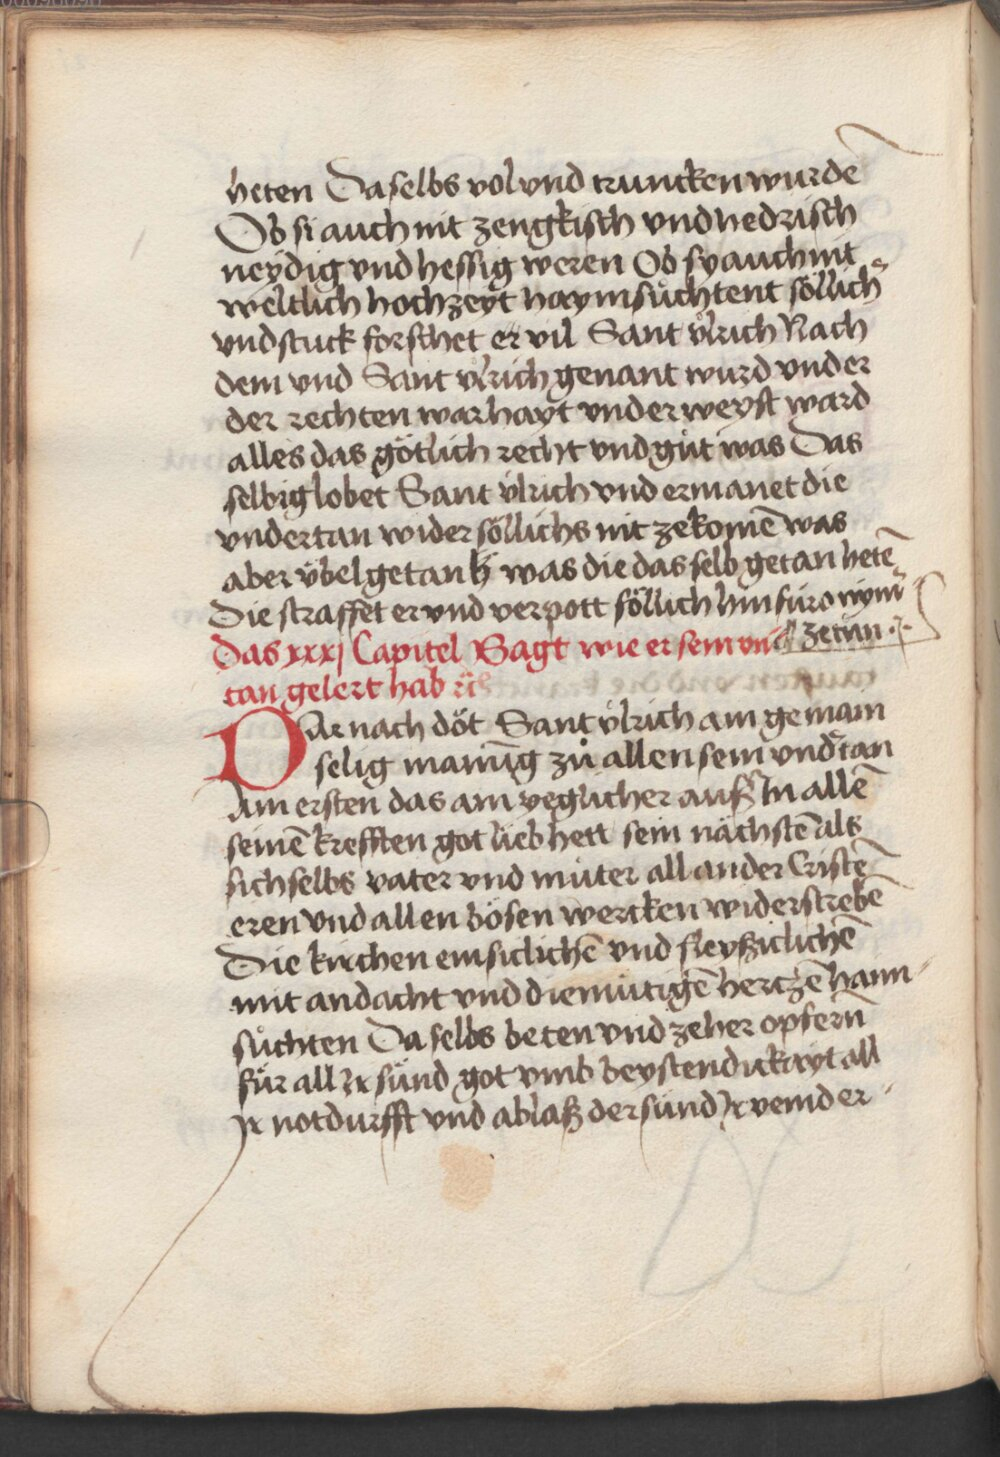 heten Da selbs vol vnd truncken wurdē
Ob si auch nit zengkisch vnd hedrisch
neydig vnd hessig weren Ob sy auch nit
weltlich hochzeyt haymsuͦchtent söllich
vnd stuck forschet er vil Sant vͦlrich Nach
dem vnd Sant vͦlrich genant wurd vnd er
der rechten warhayt vnderweyst ward
alles das götlich recht vnd guͦt was Das
selbig lobet Sant vͦlrich vnd ermanet die
vndertan wider söllichs nit zekomē was
aber vͤbel getan was die das selb getan hetē
Die straffet er vnd verpott söllich hinfüro nym̄
zetun
Das xxxj Capitel Sagt wie er sein vnd
tan gelert hab ꝛc
Dar nach döt Sant vͦlrich ain gemain
selig manūg zuͦ allen sein vnd̄tan
Am ersten das ain yeglicher auß In allē
seinē krefften got lieb hett sein nächstē als
sich selbs vater vnd muͦter all ander Cristē
eren vnd allen bösen wercken widerstrebē
Die kirchen emsiclichē vnd fleyßiclichē
mit andacht vnd diemuͤtigē hertzē haim
suͦchten Da selbs beten vnd zeher opfern̄
für all Ir sünd got vmb beystendickayt all
Ir notdurfft vnd ablaß der sünd Ir veind er